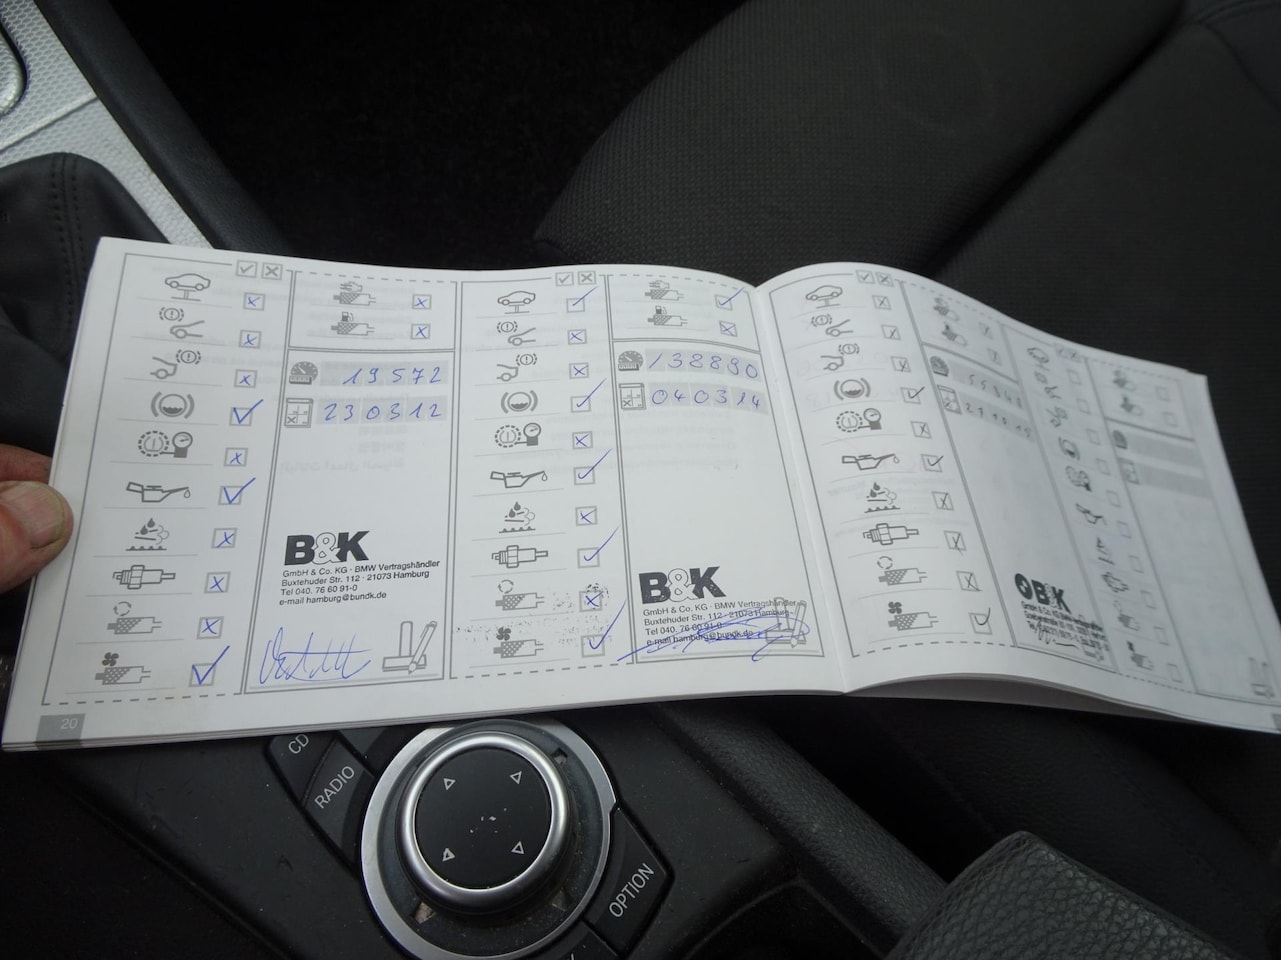 19572
230312
B&K
GmbH & Co. KG · BMW Vertragshändler
Buxtehuder Str. 112 · 21073 Hamburg
Tel 040. 76 60 91-0
e-mail hamburg@bundk.de
20
138890
040314
B&K
GmbH & Co. KG · BMW Vertragshändler
Buxtehuder Str. 112 · 21073 Hamburg
Tel 040. 76 60 91-0
e-mail hamburg@bundk.de
B&K
CD
RADIO
OPTION